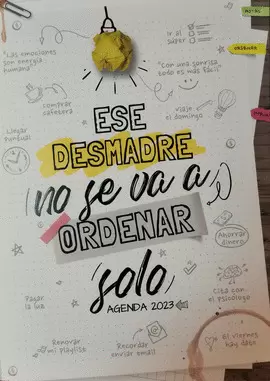 NOTAS
"Las emociones
son energía
humana"
Ir al
súper
"Con una sonrisa
todo es más fácil"
comprar
cafetera
viaje
el domingo
Llegar
puntual
ESE
DESMADRE
no se va a
ORDENAR
solo
AGENDA 2023
Ahorrar
dinero
Cita con
el psicólogo
Pagar
la luz
Renovar
mi playlist
Recordar
enviar email
El viernes
hay date